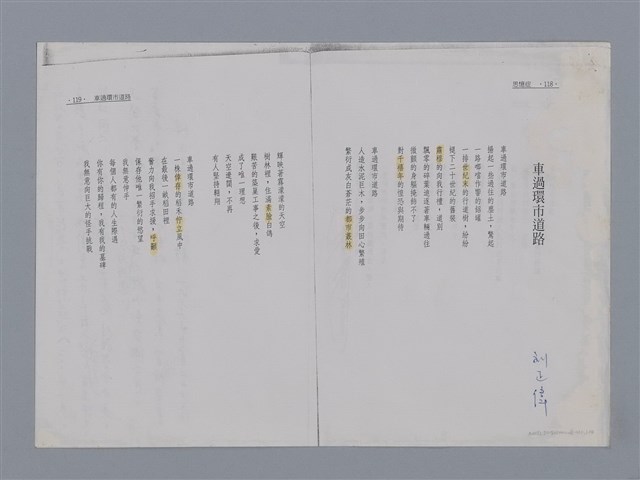 思憶症 ·118·
車過環市道路
車過環市道路
揚起一些過往的塵土，驚起
一路嘶啞作響的鋸嘯
一排世紀末的行道樹，紛紛
褪下二十世紀的舊襖
露棲的向我行禮，道別
飄零的碎葉追逐著車輛過往
傲顫的身軀倚斜不了
對千禧年的惶恐與期待
車過環市道路
人造水泥巨木，步步向田心繁殖
繁衍成灰白蒼茫的都市叢林
劉正偉
·119· 車過環市道路
輝映著蒼濛濛的天空
樹林裡，住滿素臉白鴿
艱苦的築巢工事之後，求愛
成了唯一理想
天空邊闊，不再
有人堅持翱翔
車過環市道路
一株倖存的稻禾佇立風中
在最後一畝稻田裡
奮力向我招手求援，呼籲
保存他唯一繁衍的慾望
我無意伸手
每個人都有的人生際遇
你有你的歸程，我有我的墓碑
我無意向巨大的怪手挑戰